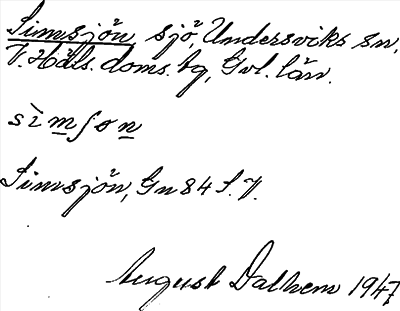 Simsjön, sjö, Undersviks sn,
V. Häls. doms. bg, Gvl. län.
sìmʃon
Simsjön, Gn 84 S.V.
August Dalhem 1947